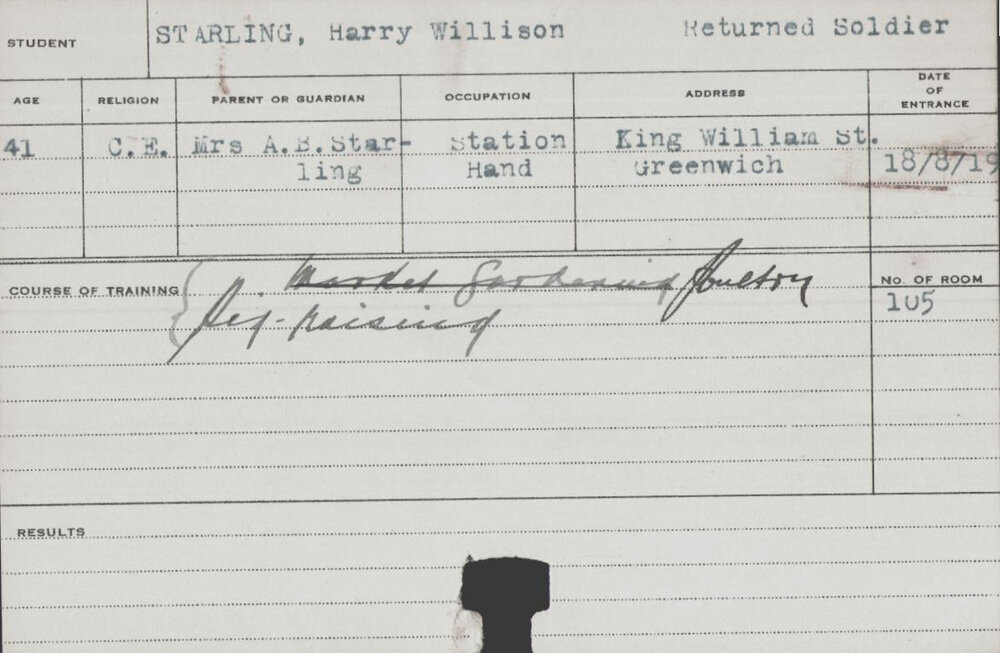 STUDENT STARLING, Harry Willison Returned Soldier
AGE RELIGION PARENT OR GUARDIAN OCCUPATION ADDRESS DATE OF ENTRANCE
41 C.E. Mrs A.B.Star- Station King William St.
ling Hand Greenwich 18/8/19
COURSE OF TRAINING Market Gardening Poultry No. OF ROOM
Pig-raising 105
RESULTS